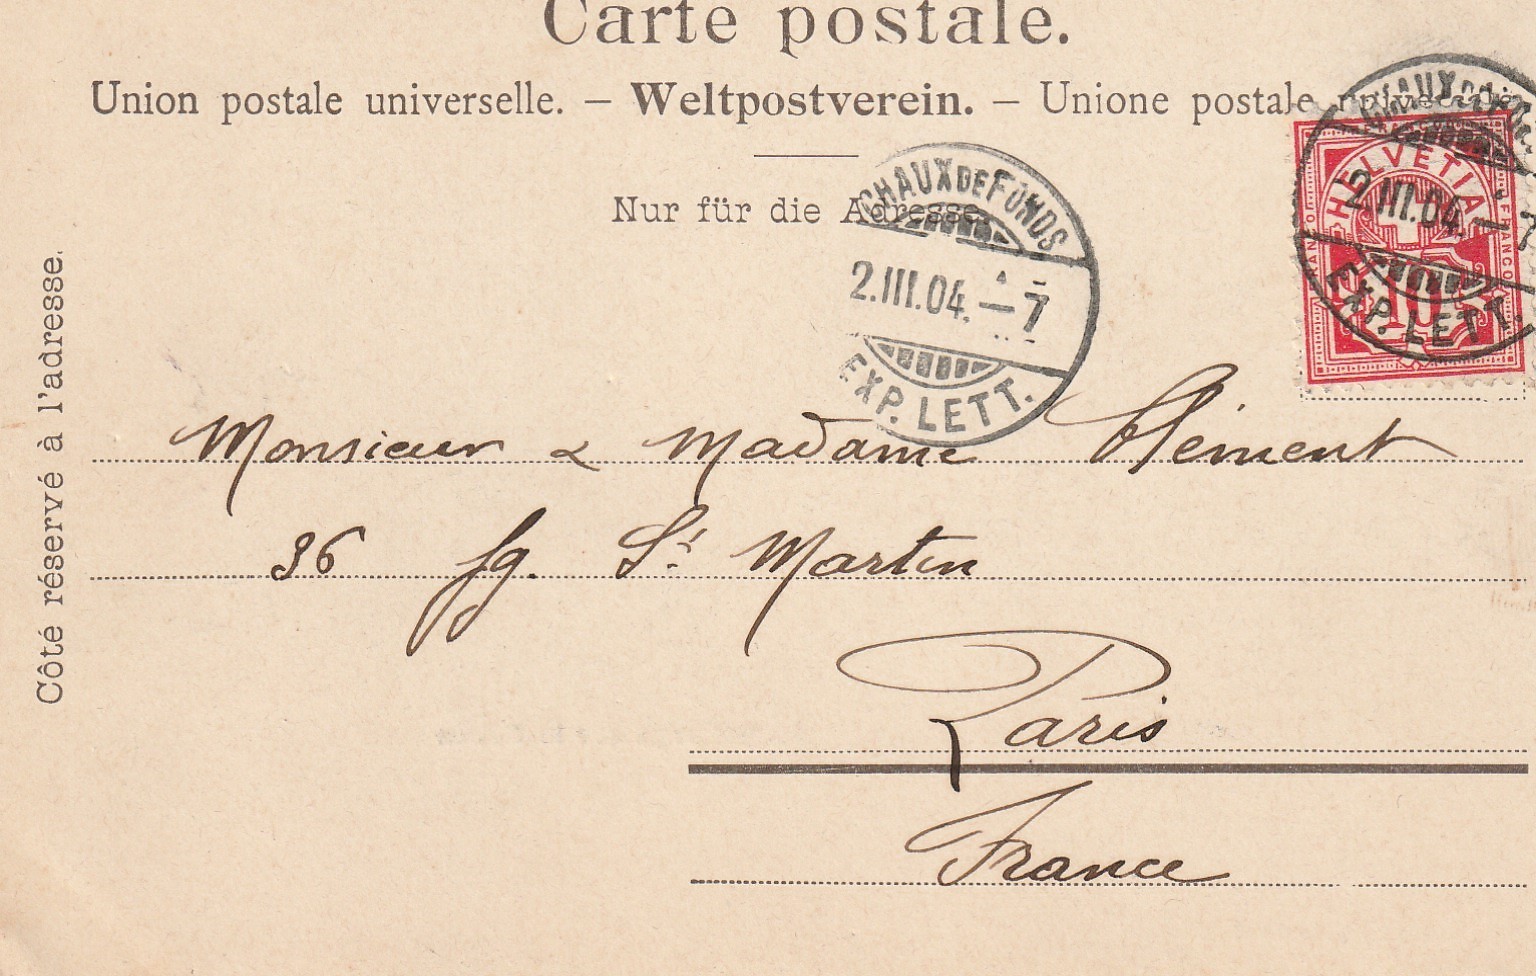 Carte postale.
Union postale universelle. – Weltpostverein. – Unione postale universale
Nur für die Adresse.
Côté réservé à l'adresse.
CHAUX DE FONDS
2.III.04.–7
EXP. LETT.
CHAUX DE FONDS
2.III.04.–7
EXP. LETT.
HELVETIA
FRANCO
10
Monsieur & Madame Clément
36 fg. St Martin
Paris
France